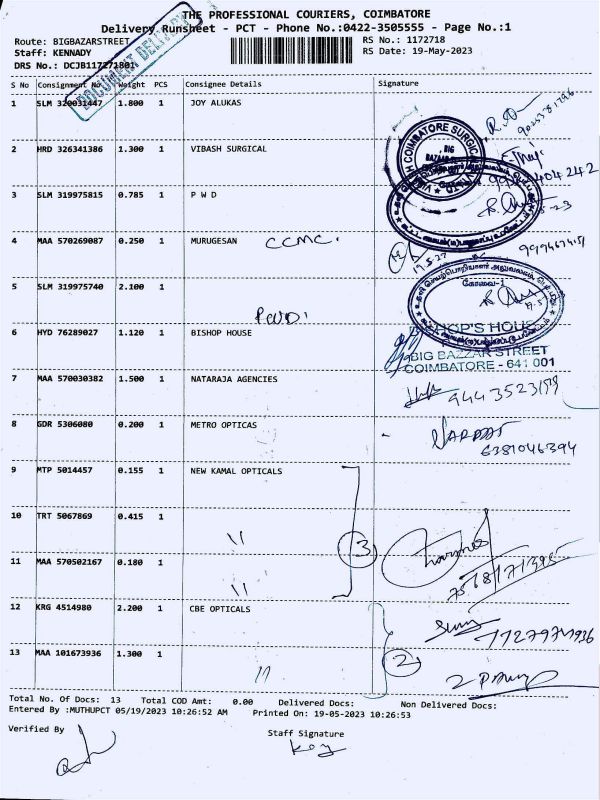 THE PROFESSIONAL COURIERS, COIMBATORE
Delivery Runsheet - PCT - Phone No.:0422-3505555 - Page No.:1
Route: BIGBAZARSTREET
RS No.: 1172718
Staff: KENNADY
RS Date: 19-May-2023
DRS No.: DCJB117271801
DOCUMENT DELIVERY
S No Consignment No Weight PCS Consignee Details Signature
1 SLM 320031447 1.800 1 JOY ALUKAS
2 HRD 326341386 1.300 1 VIBASH SURGICAL
COIMBATORE SURGICAL
BIG
3 SLM 319975815 0.785 1 P W D
4 MAA 570269087 0.250 1 MURUGESAN CCMC.
5 SLM 319975740 2.100 1
PWD
கோவை-1
6 HYD 76289027 1.120 1 BISHOP HOUSE
BISHOP'S HOUSE
BIG BAZZAR STREET
COIMBATORE - 641 001
7 MAA 570030382 1.500 1 NATARAJA AGENCIES
8 GDR 5306080 0.200 1 METRO OPTICAS
6381046394
9 MTP 5014457 0.155 1 NEW KAMAL OPTICALS
10 TRT 5067869 0.415 1 "
3
11 MAA 570502167 0.180 1 "
12 KRG 4514980 2.200 1 CBE OPTICALS
2
13 MAA 101673936 1.300 1 "
Total No. Of Docs: 13 Total COD Amt: 0.00 Delivered Docs: Non Delivered Docs:
Entered By :MUTHUPCT 05/19/2023 10:26:52 AM Printed On: 19-05-2023 10:26:53
Verified By
Staff Signature